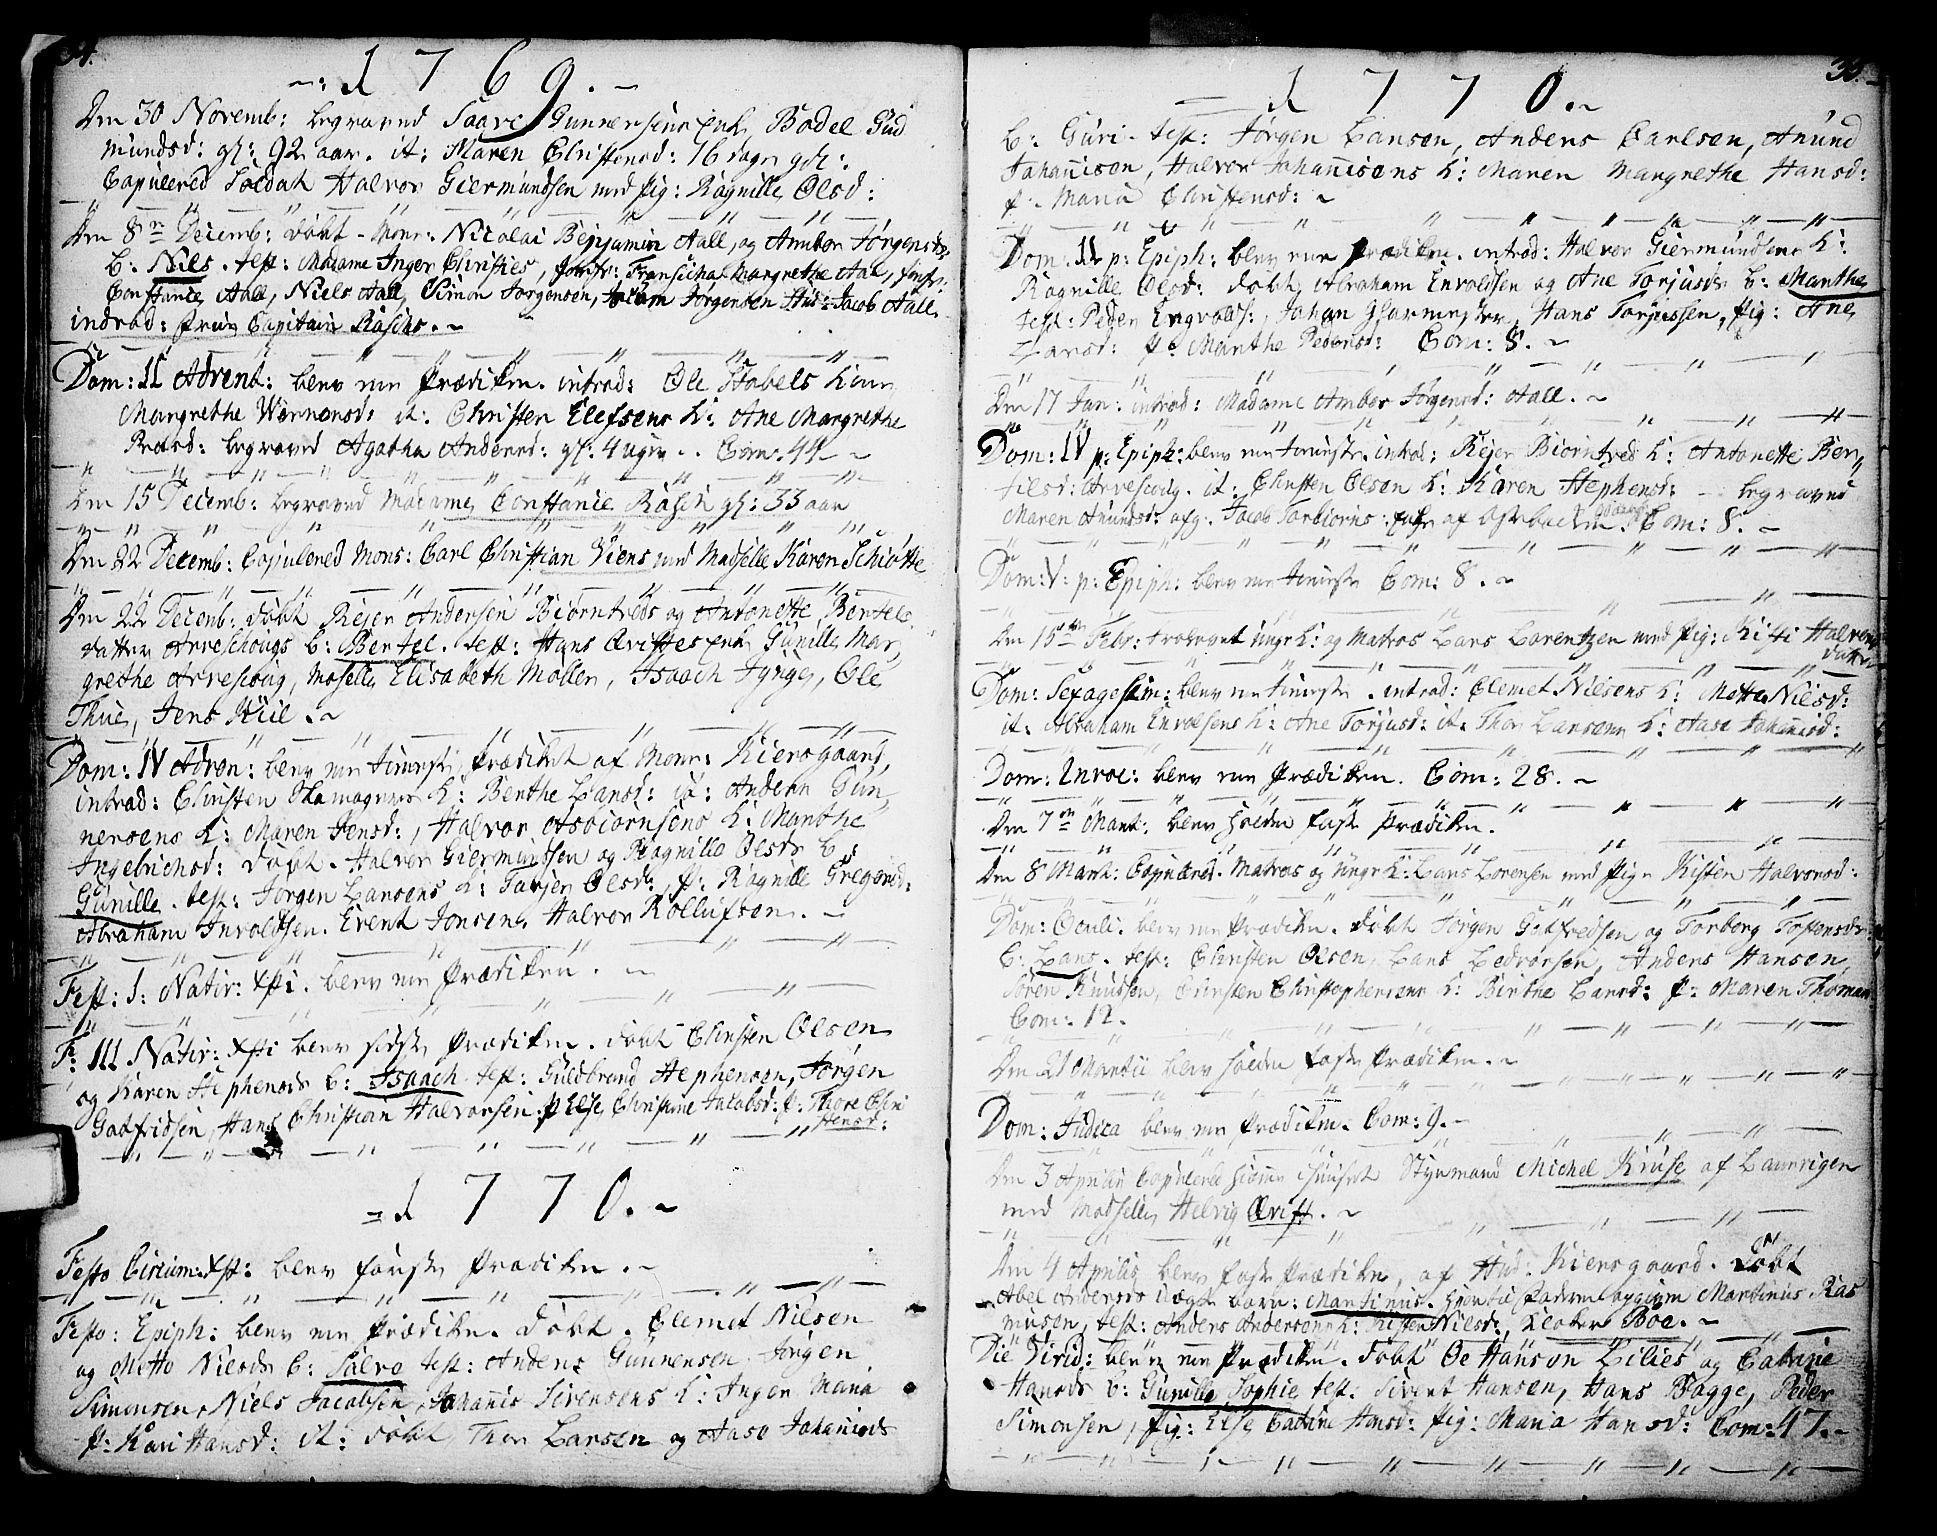 34.
1769.
Den 30 Novemb: begraved Saave Gunnersens Enke Bodel Gud
mundsd: gl: 92 aar. it: Maren Christensd: 16 dage gl:
Copulered Soldat Halvor Giermundsen med Pig: Ragnille Olsd:
Den 8de Decemb: döbt Monr: Nicolai Benjamin Aall, og Amber Jörgensds
b: Niels. test: Madame Inger Christies, Jomfr: Fransicha Margrethe Aal, Jmfr:
Constance Aall, Niels Aall, Simon Jorgensen, Jörgensen Stud: Jacob Aall.
introd: Frue Capitain Räschs.
Dom: II Advent: blev en Prædiken. introd: Ole Stabels Kone
Margrethe Wernersd: it: Christen Elefsens K: Ane Margrethe
begraved Agatha Andersd: gl: 4 uger. Com: 44
Den 15 Decemb: begraved Madame Constance Räsch gl: 33 aar
Den 22 Decemb: Copulered Mons: Carl Christian Viens med Madselle Karen Schiötte
Den 22 Decemb: döbt Rejer Andersen Biörntveds og Antonette Bertels
datter Arveschougs b: Bertel. test: Hans Örifftes Enke Gunille Mar
grethe Arvescoug, Moselle Elisabeth Möller, Isaach Jynge, Ole
Thue, Jens Kiil.
Dom: IV Adven: blev en Prædiket af Monr: Kiersgaard,
introd: Christen Skamagers K: Berthe Larsd: it: Anders Gun
nersens K: Maren Jensd:, Halvor Asbiörnsens K: Marthe
Ingebrichsd: döbt. Halvor Giermundsen og Ragnille Olsds b:
Gunille. test: Jörgen Larsens K: Torjer Olsd:, P: Ragnille Gregersd:
Abraham Involdsen. Event Jonsen, Halvor Rollufsen.
Fest: I: Nativ: Xsti. blev en Prædiken.
F: III Nativ: Xsti blev sidste Prædiken. döbt Christen Olsen
og Karen Stephensds b: Isaach test: Guldbrand Stephensen, Jörgen
Gotfridsen, Hans Christian Halvorsen. P: Else Christine Jacobsd: P: Thore Chri
stensd:
1770.
Festo Circum: Xst: blev förste Prædiken.
Festo: Epiph: blev en Prædiken. döbt. Clemet Nilsen
og Mette Nilsds b: Salve test: Anders Gunnersen Jörgen
Simonsen, Niels Jacobsen, Johanis Sivensens K: Inger Maria
P: Kari Hansd: it: döbt Thor Larsen og Aase Johanisds
35.
1770.
b: Guri. test: Jörgen Larsen, Anders Carlsen, Anund
Johanisen, Halvor Johanisens K: Maren Margrethe Hansd:
P: Maria Christensd:
Dom: II p: Epiph: blev en Prædiken. introd: Halvor Giermundsens K:
Ragnille Olsd: döbt Abraham Involdsen og Ane Torjusds b: Marthe
test: Peder Engvolds:, Johan Glarmester, Hans Torjussen, Pig: Ane
Larsd: P: Marthe Pedersd: Com: 8.
Den 17 Jan: introd: Madame Amber Jörgensd: Aall.
Dom: IV p: Epiph: blev en introd: Rejer Biörntveds K: Antonette Ber
tilsd: Arvescoug. it: Christen Olsen K: Karen Stephensd: begraved
Maren Anundsd: afg: Jacob Torbiörns: Enke af Com: 8.
Dom: V: p: Epiph: blev en Com: 8.
Den 15de Febr: trolovet ungk: og Matros Lars Lorentzen med Pig: Kisti Halvors
datter
Dom: Sexagesim: blev en introd: Clemet Nilsens K: Mette Nilsd:
it: Abraham Envolsens K: Ane Torjusd: it: Thor Larsens K: Aase Johanisd:
Dom: Invoc: blev en Prædiken. Com: 28.
Den 7de Mart: blev holden Faste Prædiken.
Den 8 Mart: Copulered. Matros og Ungk: Lars Lorensen med Pig: Kisten Halvorsd:
Dom: Oculi. blev en Prædiken. döbt Jörgen Gotfredsen og Torborg Tostensds
b: Lars. test: Christen Olsen, Lars Ledvorsen, Anders Hansen,
Sören Knussen, Christen Christophersens K: Birthe Larsd: P: Maren Thomæ
Com: 12.
Den 21 Martii blev holden Faste Prædiken.
Dom: Judica blev en Prædiken. Com: 9.
Den 3 Aprilis Copulered hieme i Huuset Styrmand Michel Kruse af Laurvigen
med Madselle Helvig Örift.
Den 4 Aprilis blev Faste Prædiken, af Stud: Kiersgaard. Döbt
Abel Andersds Uægte barn: Martinus. Barnefader Martinus Ras
musen, test: Anders Andersens K: Kisten Nilsd: Boe.
Die Virid: blev en Prædiken. döbt Ole Hanson Lilies og Catrine
Hansds b: Gunille Sophie test: Sivert Hansen, Hans Bagge, Peder
Simonsen, Pig: Else Catrine Hansd: Pig: Maria Hansd: Com: 47.